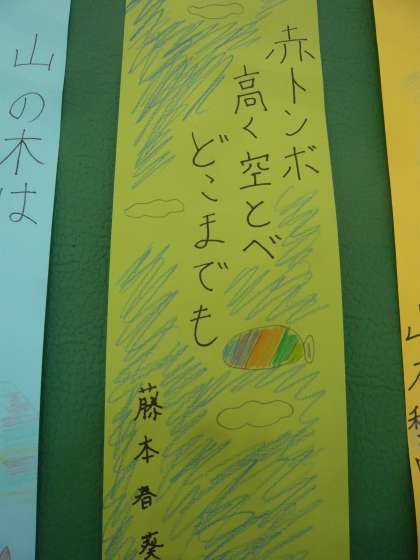 赤トンボ
高く空とべ
どこまでも
藤本春葵
山の木は